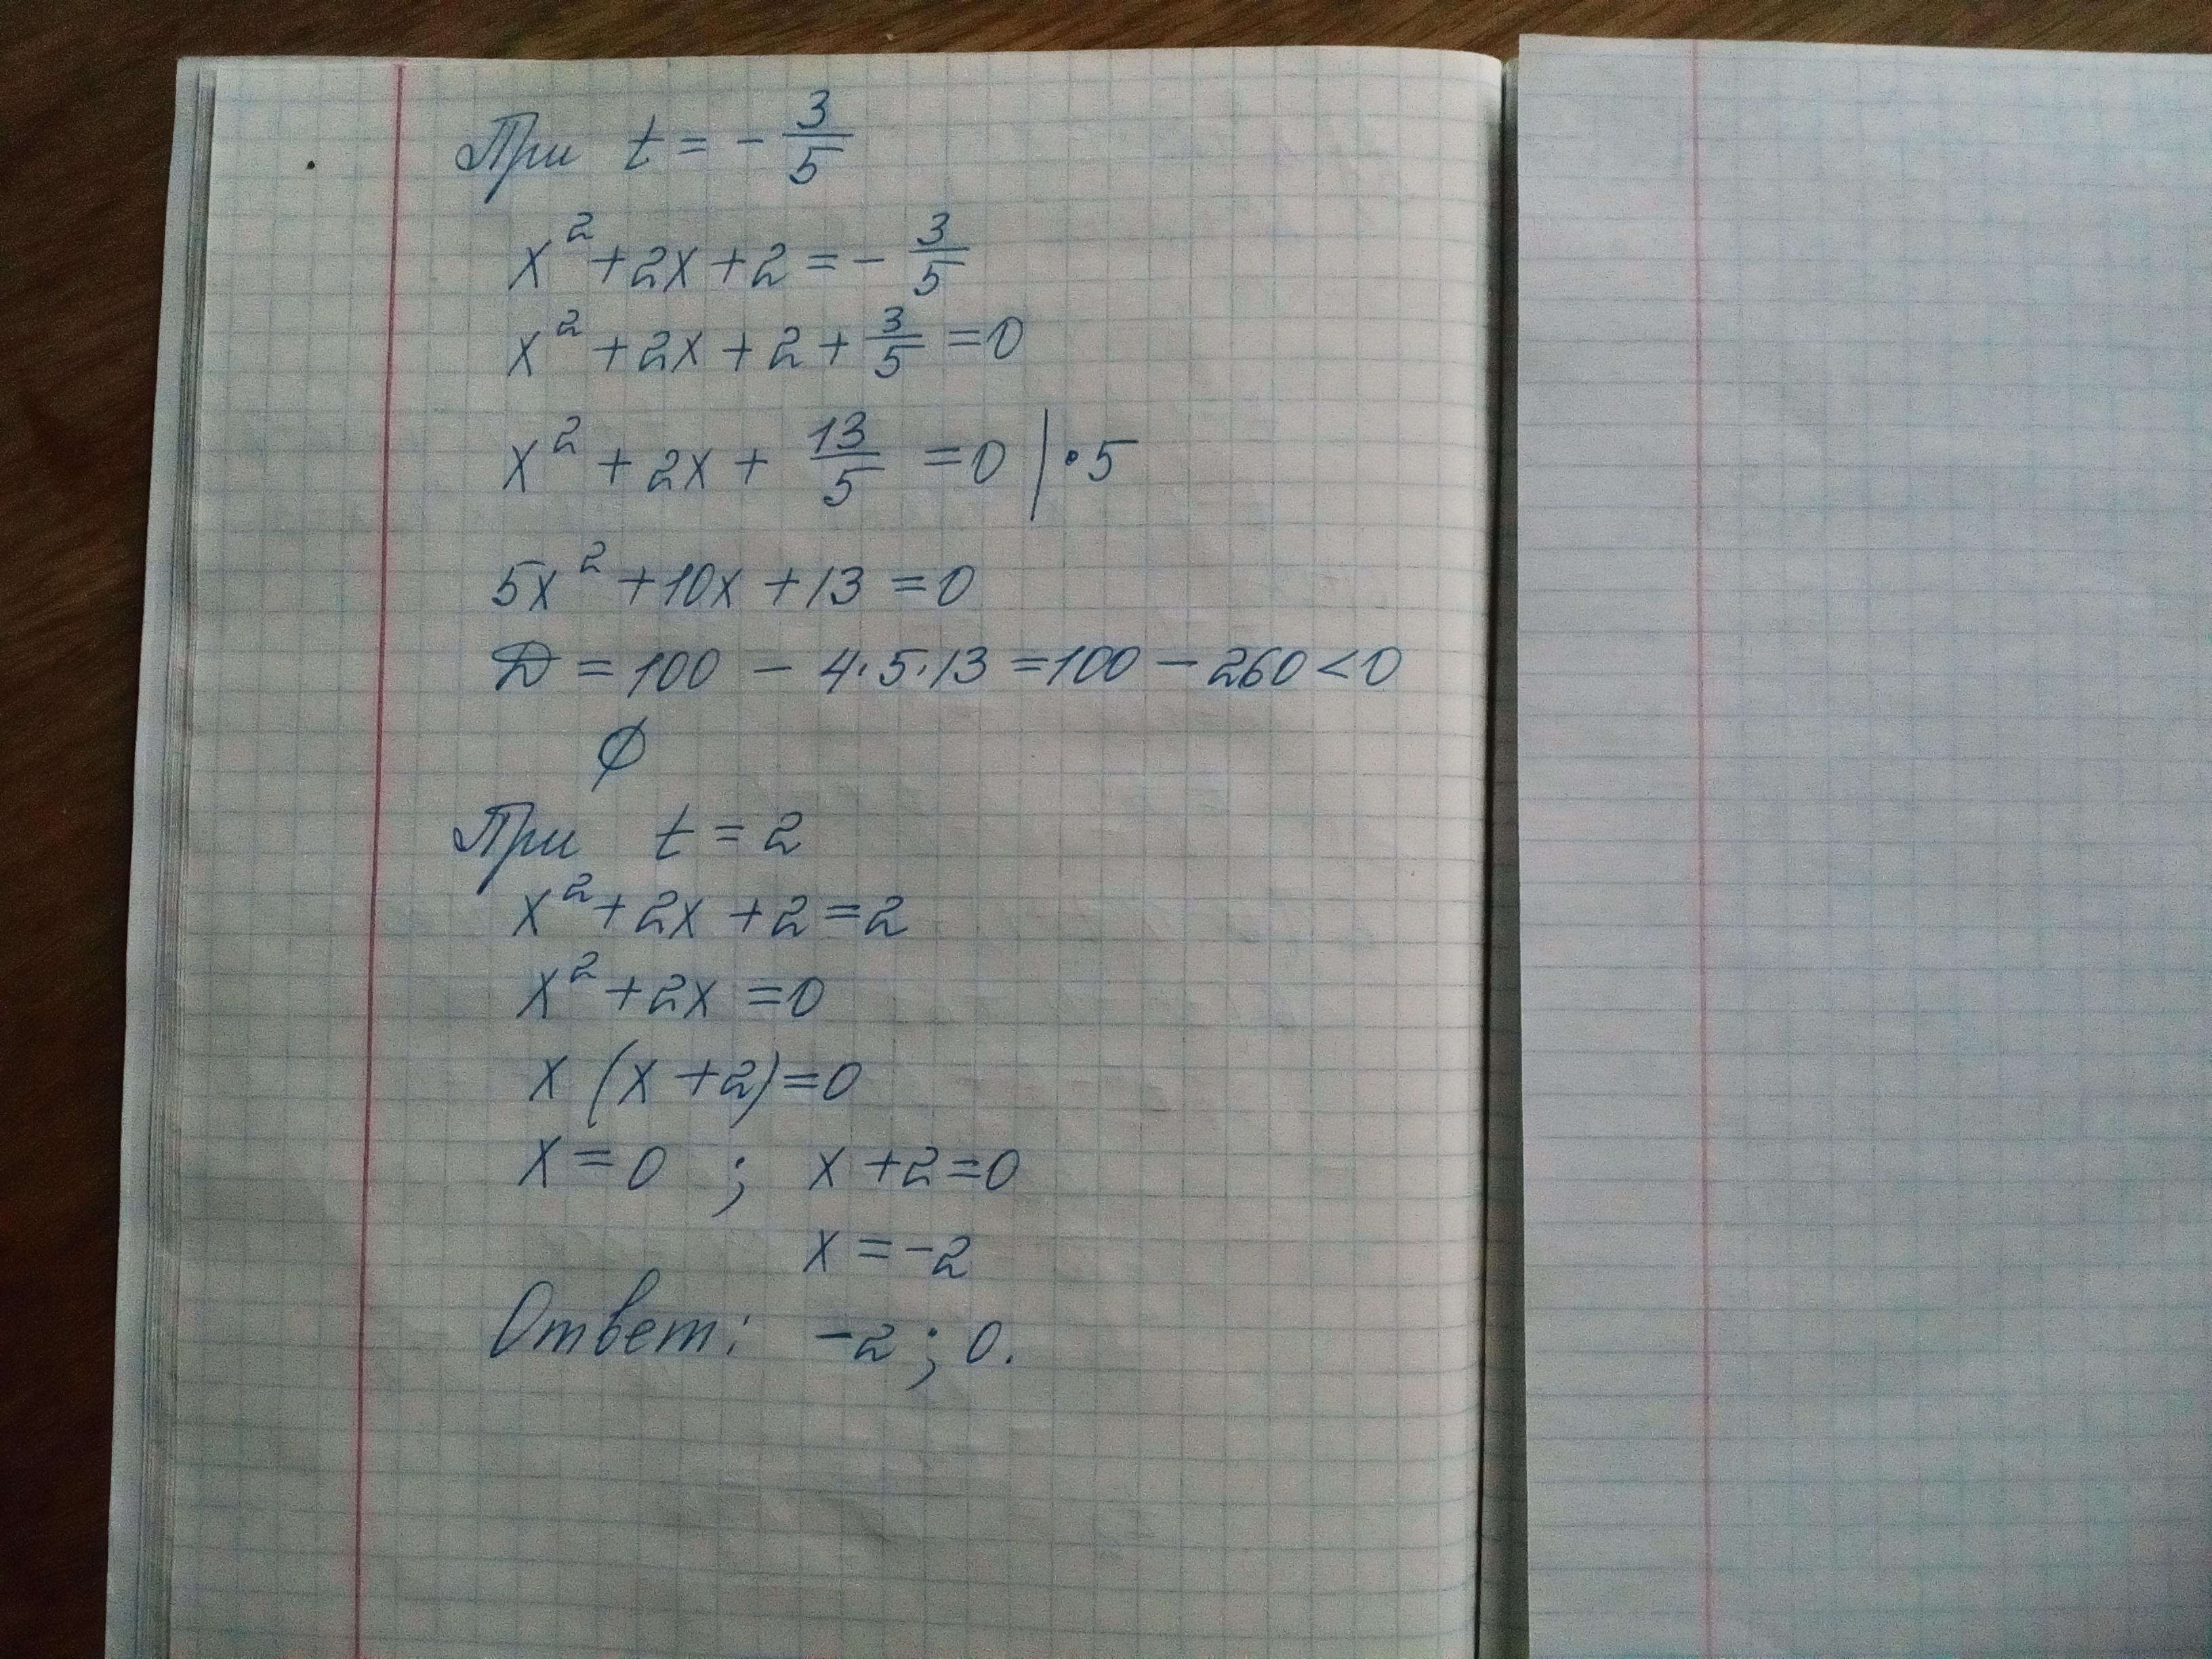 При t = - 3/5
x² + 2x + 2 = - 3/5
x² + 2x + 2 + 3/5 = 0
x² + 2x + 13/5 = 0 | · 5
5x² + 10x + 13 = 0
D = 100 - 4 · 5 · 13 = 100 - 260 < 0
∅
При t = 2
x² + 2x + 2 = 2
x² + 2x = 0
x (x + 2) = 0
x = 0 ; x + 2 = 0
x = -2
Ответ: -2 ; 0.